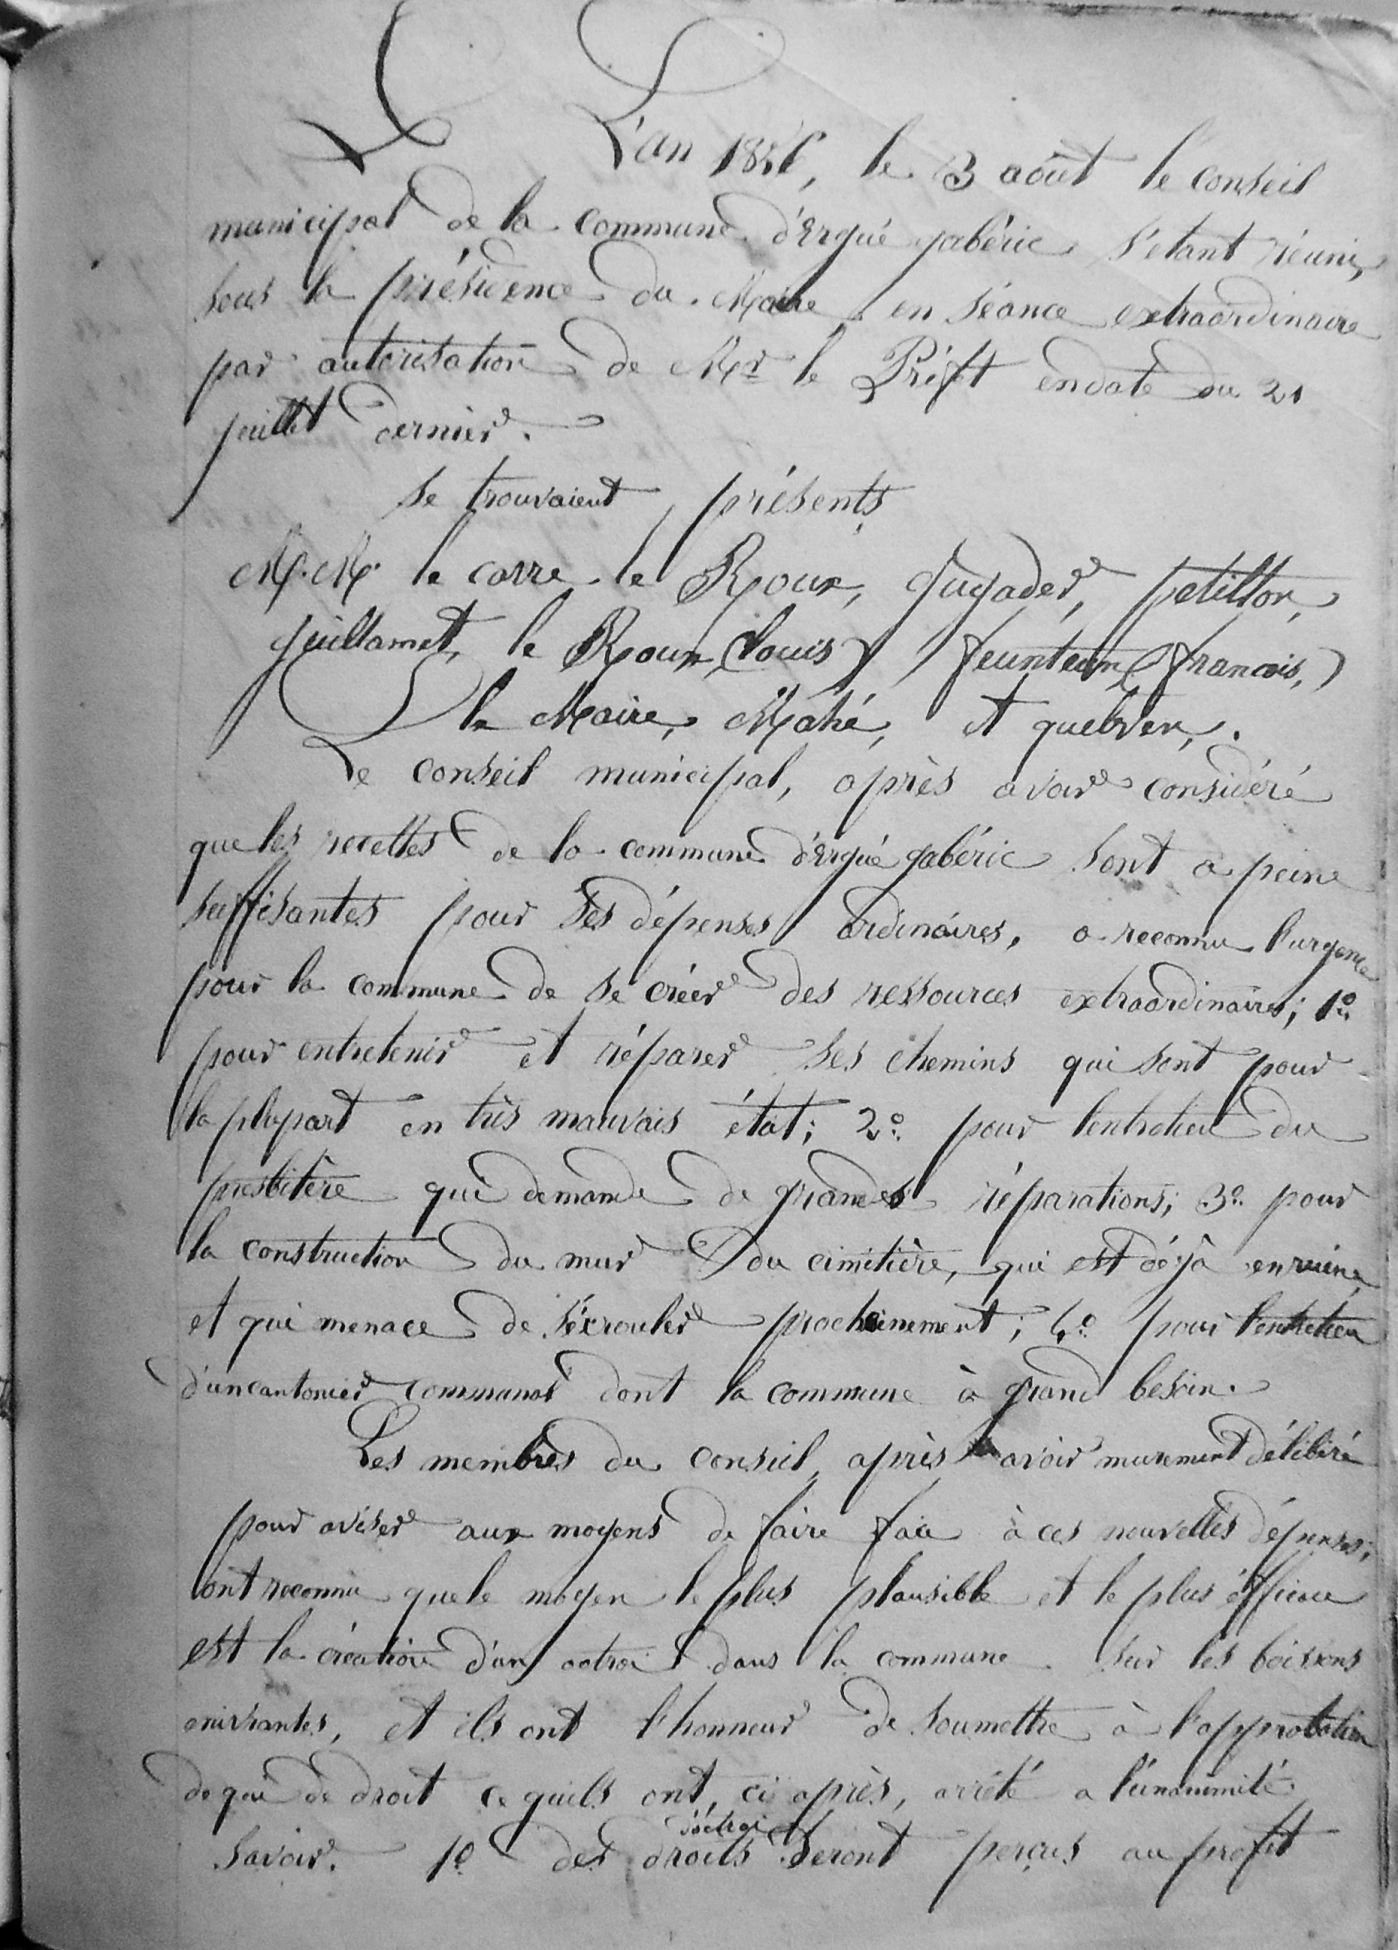 L'an 1846, le 3 août le conseil
municipal de la commune d'Ergué gabéric s'étant réuni,
sous la présidence du Maire, en séance extraordinaire
par autorisation de Mr le Préfet en date du 21
juillet dernier.
se trouvaient présents
M.M. le corre, le Roux, Gugader, petillon,
guillamet, le Roux (louis) feunteun (françois,)
le Maire, Mahé, et quelven,.
Le conseil municipal, après avoir considéré
que les recettes de la commune d'Ergué gabéric sont a peine
suffisantes pour ses dépenses ordinaires, a reconnu l'urgence
pour la commune de se créer des ressources extraordinaires; 1o
pour entretenir et réparer ses chemins qui sont pour
la plupart en très mauvais état; 2o pour l'entretien du
presbitère qui demande de grandes réparations; 3o pour
la construction du mur du cimétière, qui est déjà en ruine
et qui menace de s'écrouler prochainement; 4o pour l'entretien
d'un cantonier communal dont la commune à grand besoin.
Les membres du conseil, après avoir murement délibéré
pour aviser aux moyens de faire face à ces nouvelles dépenses;
ont reconnu que le moyen le plus plausible et le plus éfficace
est la création d'un octroi dans la commune sur les boissons
enivrantes, et ils ont l'honneur de soumettre à l'approbation
de qui de droit ce quils ont, ci après, arrêté a l'unanimité
savoir. 1o des droits d'octroi seront perçus au profit